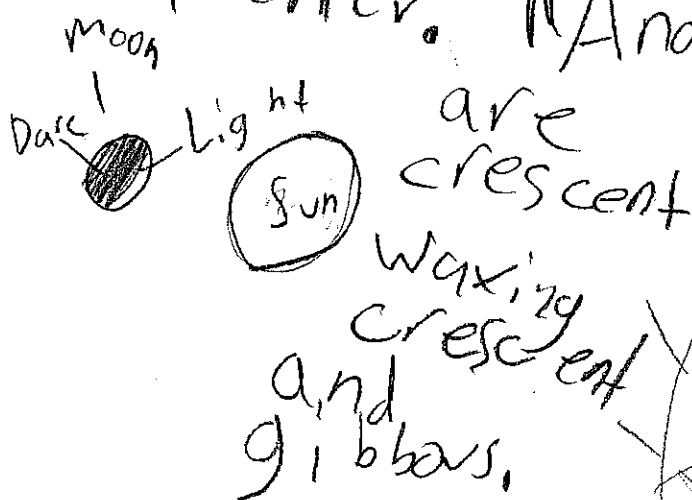 . "And
Moon
Dark Light
Sun
are
crescent
waxing
crescent
and
gibbous.